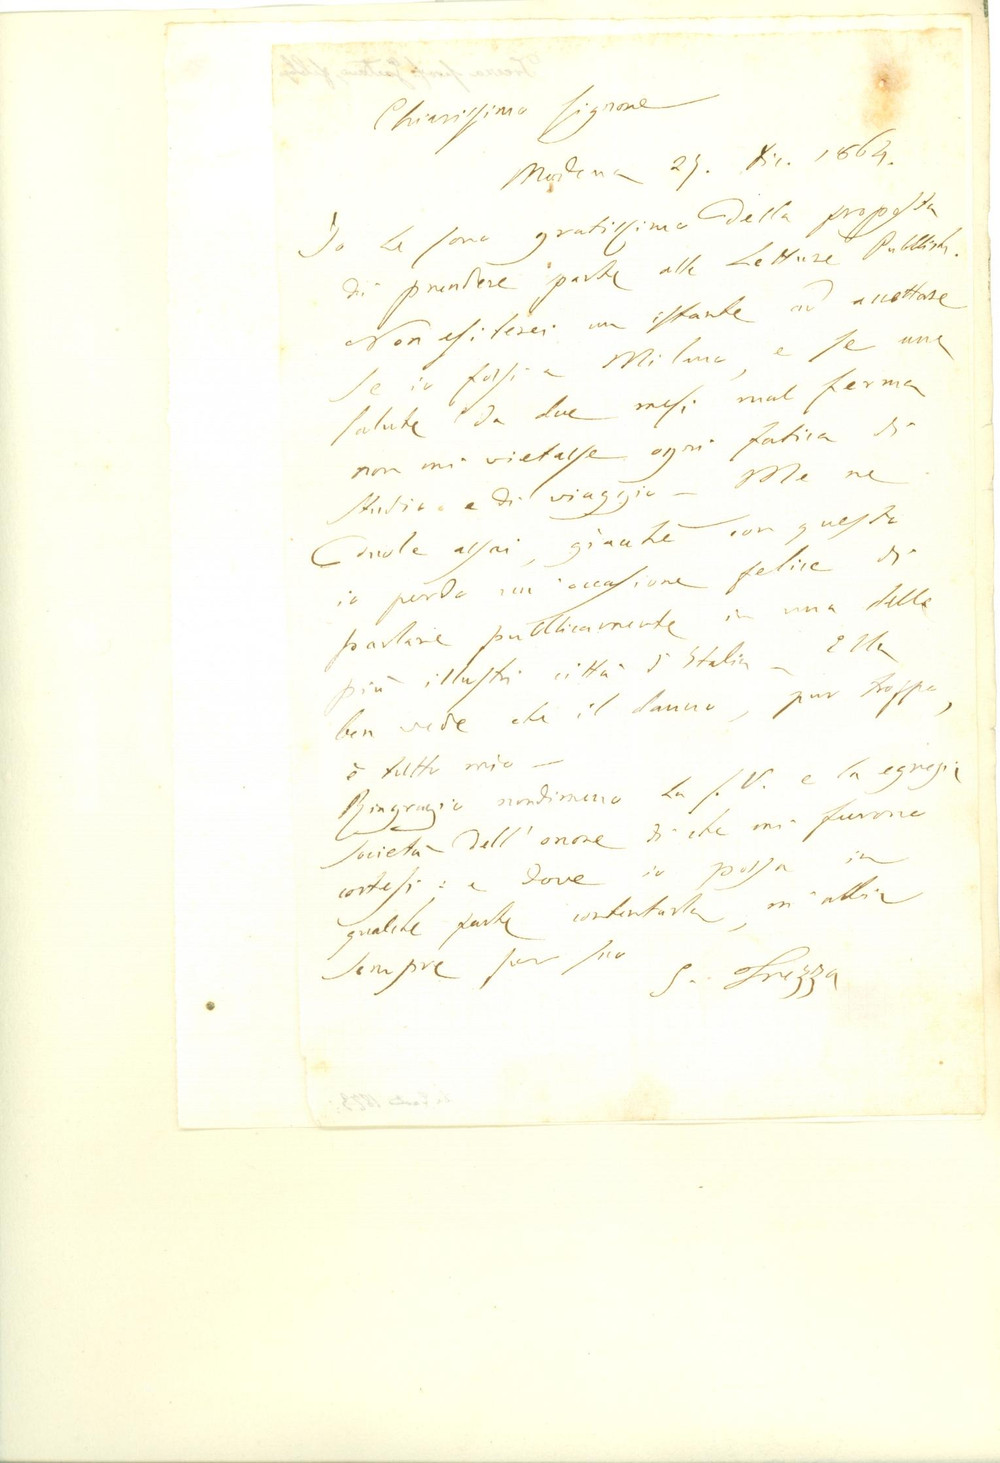 Chiarissimo Signore
Modena 25. Dic. 1864.
Io Le sono gratissimo della proposta
di prendere parte alle Letture Pubblich.
Non esiterei un istante ad accettare
se io fossi a Milano, e se una
salute da due mesi mal ferma
non mi vietasse ogni fatica di
studio e di viaggio — Me ne
duole assai, giacchè con questo
io perdo un'occasione felice di
parlare pubblicamente in una delle
più illustri città d'Italia — Ella
ben vede che il danno, pur troppo,
è tutto mio —
Ringrazio nondimeno La S. V. e la egregia
società dell'onore di che mi furono
cortesi: e dove io possa in
qualche parte contentarla, m'abbia
sempre per suo
G. Trezza